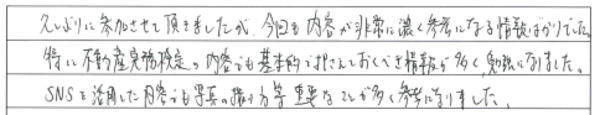 久しぶりに参加させて頂きましたが、今回も内容が非常に濃く参考になる情報ばかりでした。
特に不動産実務検定の内容でも基本的で押さえておくべき情報が多く、勉強になりました。
SNSを活用した内容でも写真の撮り方等重要なことが多く参考になりました。